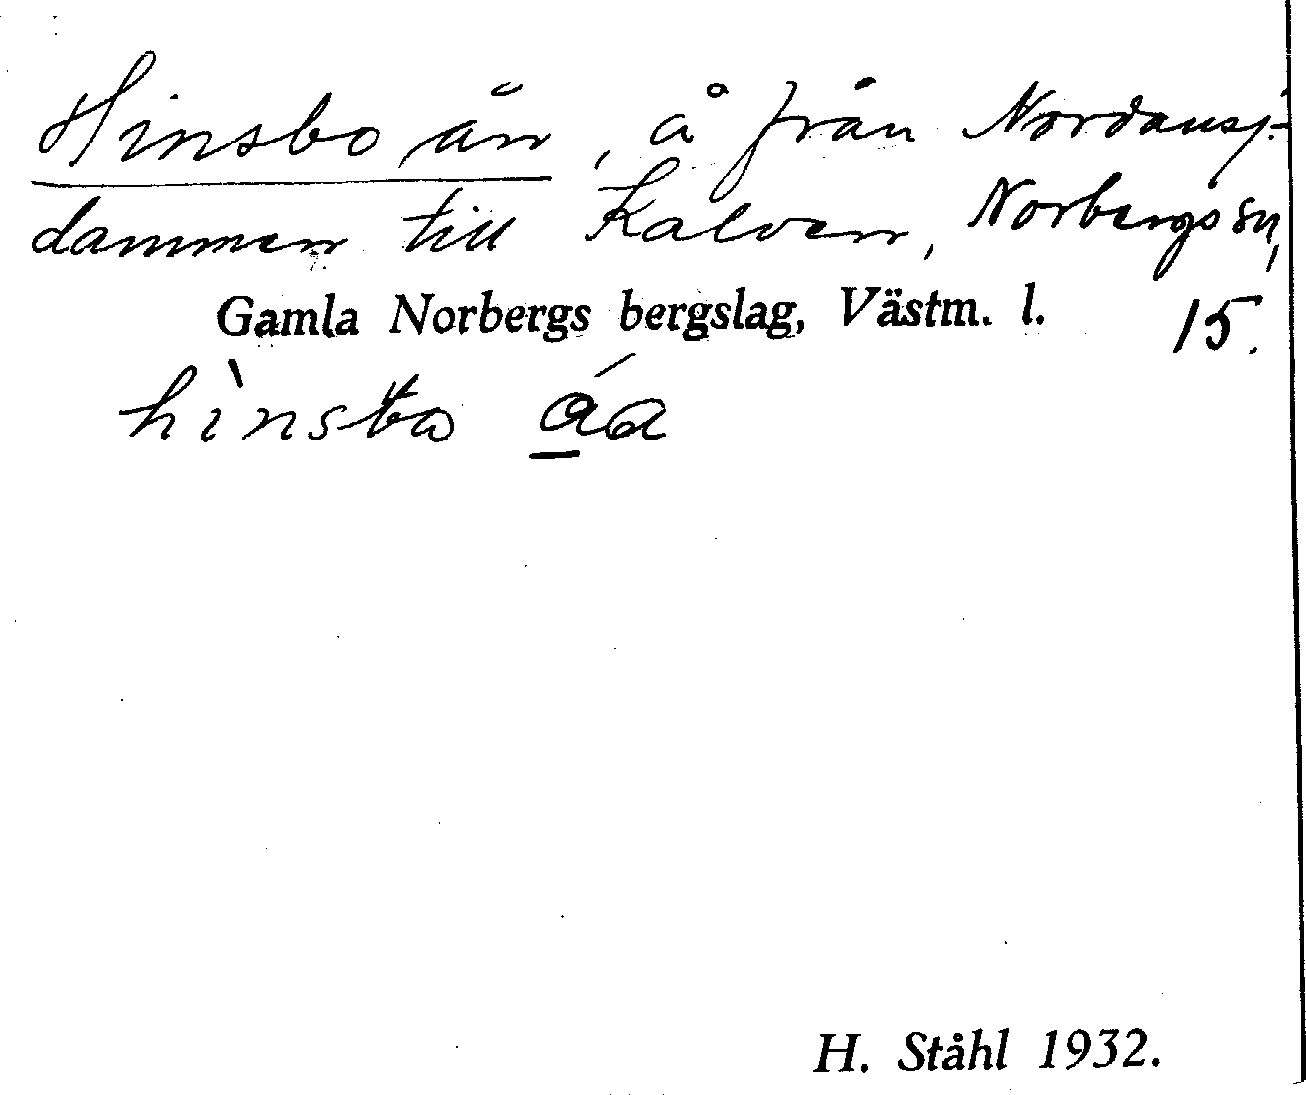 Hinsbo ån, å från Nordansj-
dammen till Kalven, Norbergs sn,
Gamla Norbergs bergslag, Västm. l. 15.
hìnsbo
H. Ståhl 1932.